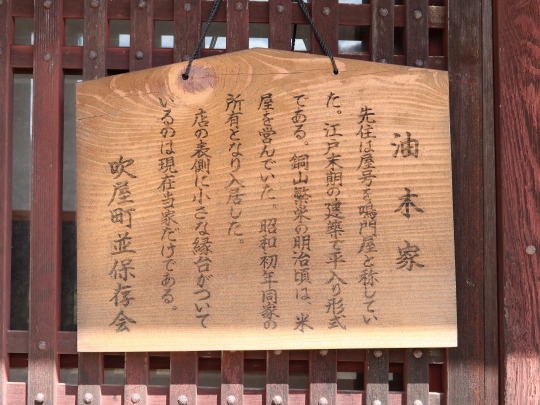 油木家
先住は屋号を鳴門屋と称してい
た。江戸末期の建築で平入り形式
である。銅山繁栄の明治頃は、米
屋を営んでいた。昭和初年同家の
所有となり入居した。
店の表側に小さな縁台がついて
いるのは現在当家だけである。
吹屋町並保存会